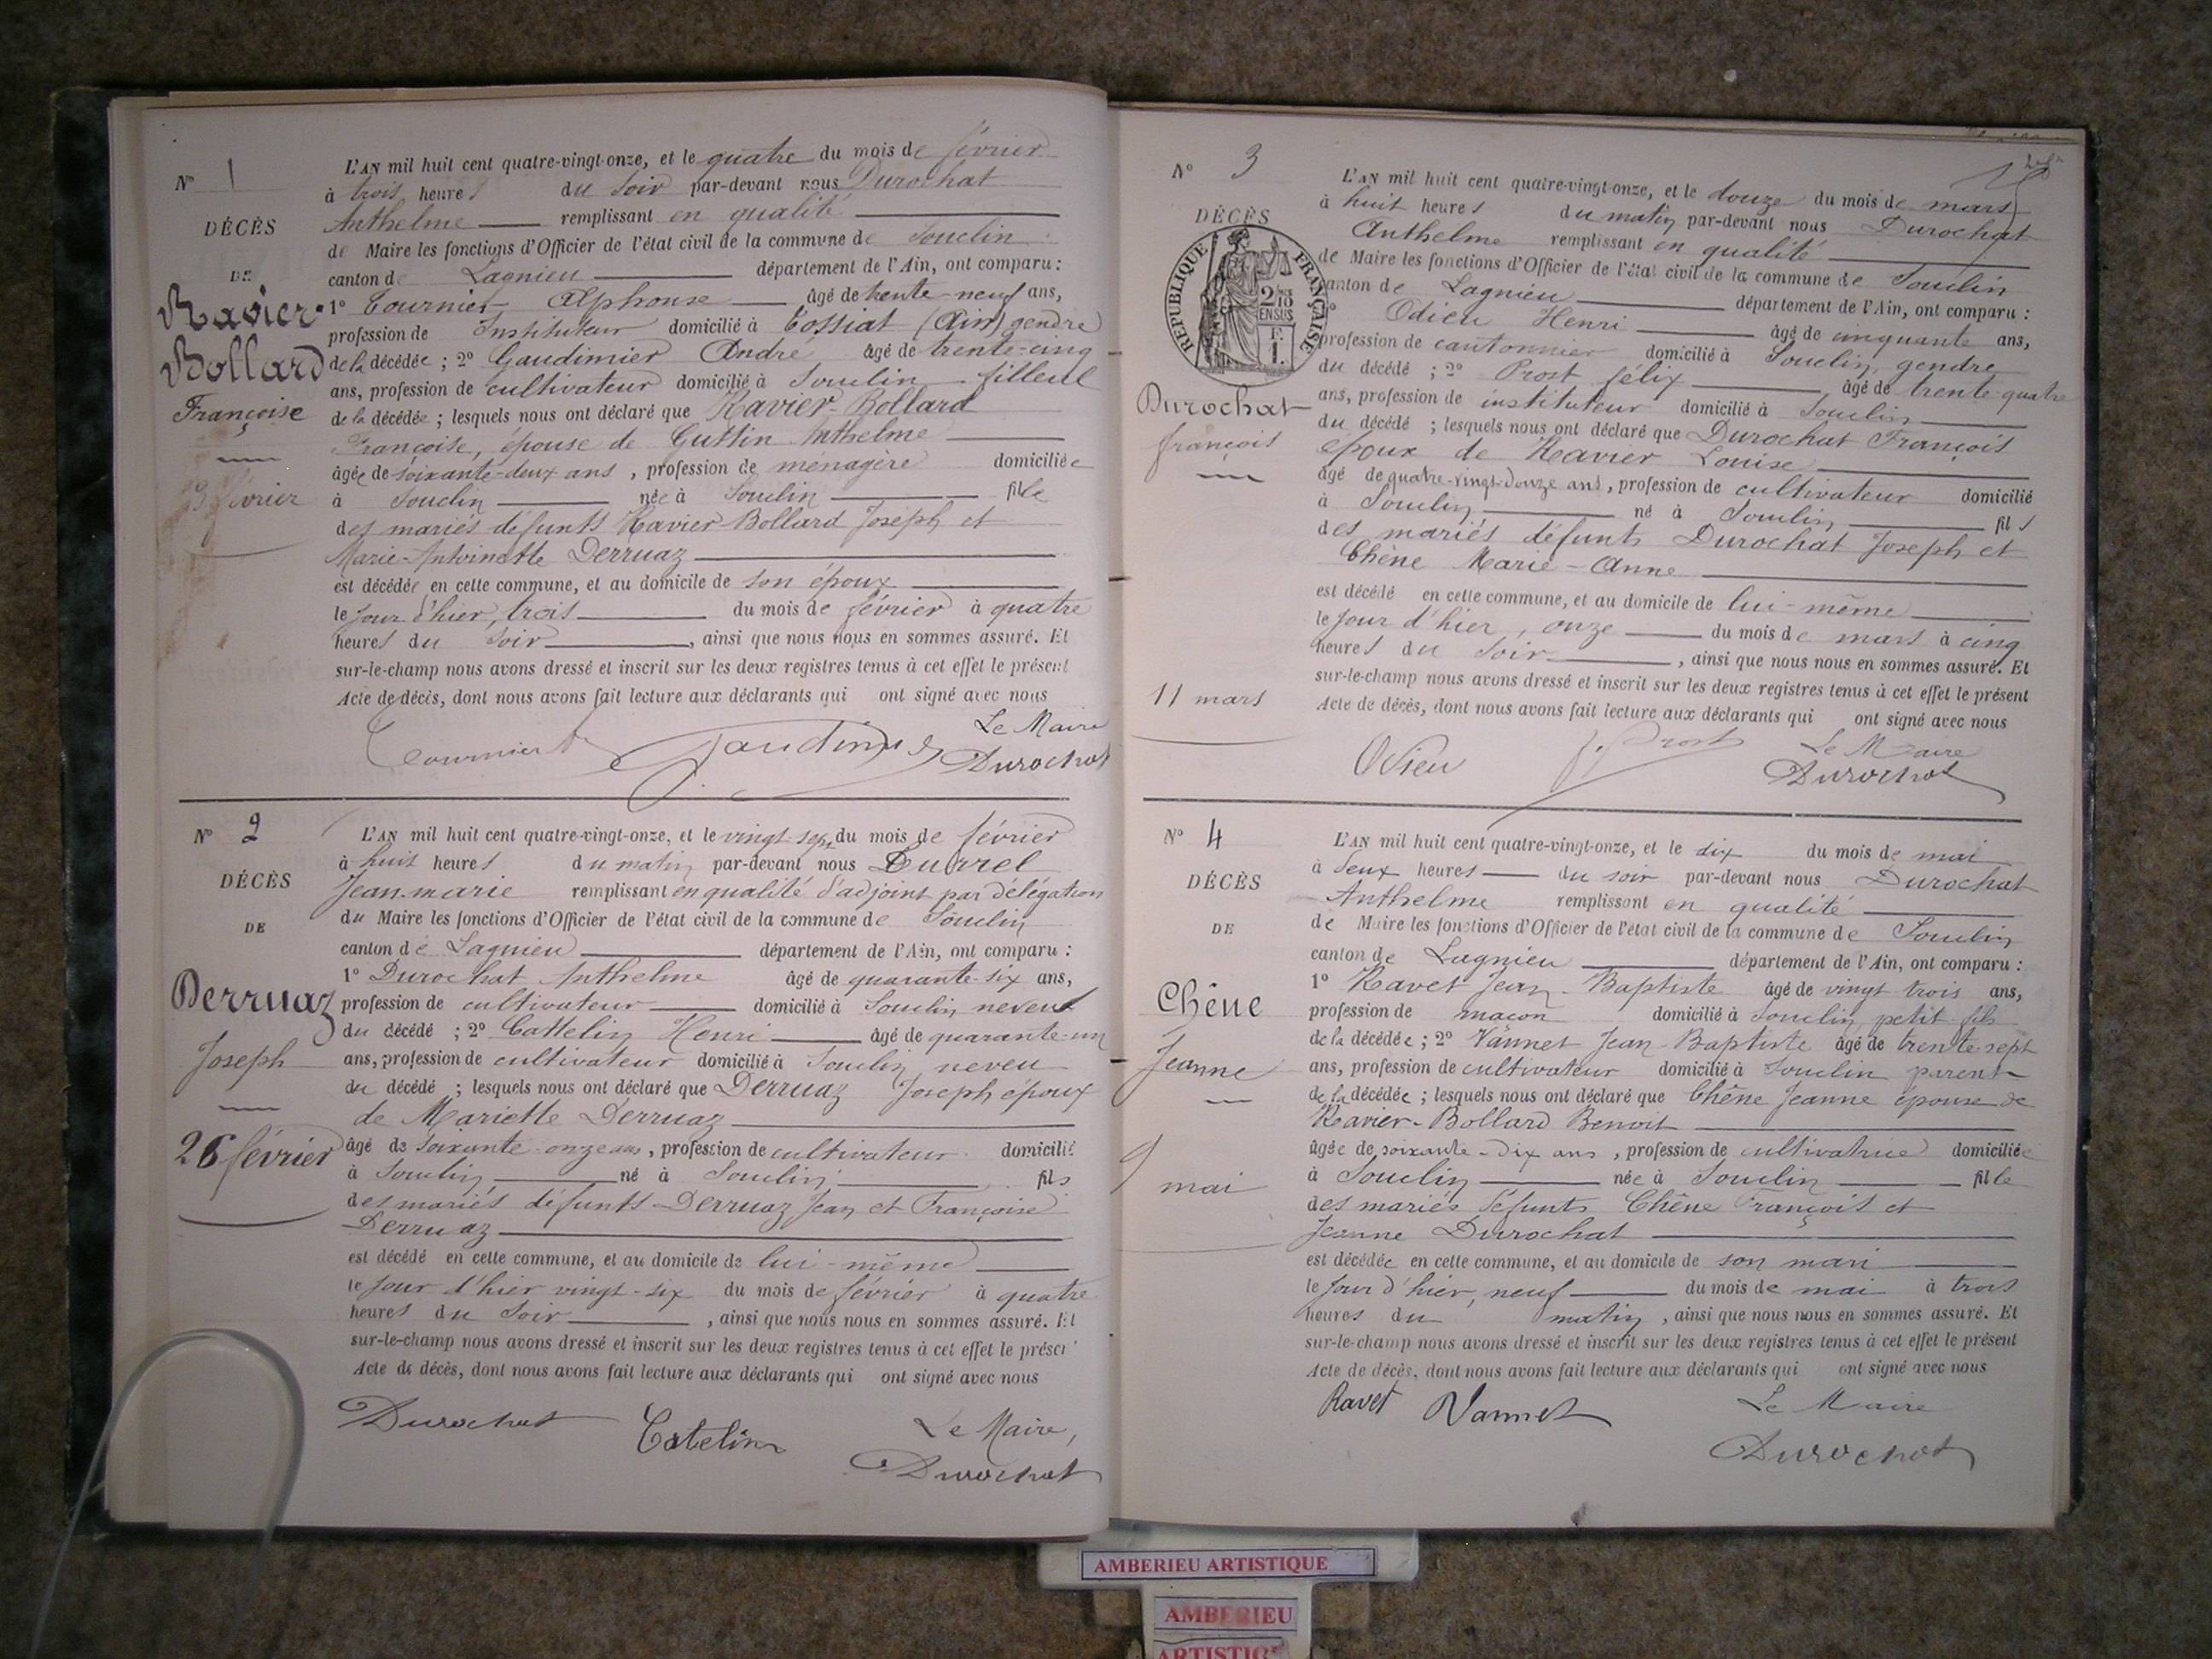 N° 1
DÉCÈS
DE
Ravier-
Bollard
Françoise
3 février
L'AN mil huit cent quatre-vingt-onze, et le quatre du mois de février
à trois heures du soir par-devant nous Durochat
Anthelme remplissant en qualité
de Maire les fonctions d'Officier de l'état civil de la commune de Souclin
canton de Lagnieu département de l'Ain, ont comparu :
1° Tournier Alphonse âgé de trente-neuf ans,
profession de Instituteur domicilié à Tossiat (Ain) gendre
de la décédée ; 2° Gaudimier André âgé de trente-cinq
ans, profession de cultivateur domicilié à Souclin filleul
de la décédée ; lesquels nous ont déclaré que Ravier-Bollard
Françoise, épouse de Guttin Anthelme
âgée de soixante-deux ans, profession de ménagère domiciliée
à Souclin née à Souclin fille
des mariés défunts Ravier-Bollard Joseph et
Marie-Antoinette Derruaz
est décédée en cette commune, et au domicile de son époux
le jour d'hier, trois du mois de février à quatre
heures du soir, ainsi que nous nous en sommes assuré. Et
sur-le-champ nous avons dressé et inscrit sur les deux registres tenus à cet effet le présent
Acte de décès, dont nous avons fait lecture aux déclarants qui ont signé avec nous
Le Maire
Tournier Gaudimier Durochat
N° 2
DÉCÈS
DE
Derruaz
Joseph
26 février
L'AN mil huit cent quatre-vingt-onze, et le vingt-sept du mois de février
à huit heures du matin par-devant nous Currel
Jean-marie remplissant en qualité d'adjoint par délégation
du Maire les fonctions d'Officier de l'état civil de la commune de Souclin
canton de Lagnieu département de l'Ain, ont comparu :
1° Durochat Anthelme âgé de quarante-six ans,
profession de cultivateur domicilié à Souclin neveu
du décédé ; 2° Cattelin Henri âgé de quarante-un
ans, profession de cultivateur domicilié à Souclin, neveu
du décédé ; lesquels nous ont déclaré que Derruaz Joseph époux
de Mariette Derruaz
âgé de soixante-onze ans, profession de cultivateur domicilié
à Souclin né à Souclin fils
des mariés défunts Derruaz Jean et Françoise
Derruaz
est décédé en cette commune, et au domicile de lui-même
le jour d'hier vingt-six du mois de février à quatre
heures du soir, ainsi que nous nous en sommes assuré. Et
sur-le-champ nous avons dressé et inscrit sur les deux registres tenus à cet effet le présent
Acte de décès, dont nous avons fait lecture aux déclarants qui ont signé avec nous
Durochat Catelin Le Maire,
Durochat
N° 3
DÉCÈS
RÉPUBLIQUE FRANÇAISE
2/10 EN SUS
1 F.
Durochat
françois
11 mars
L'AN mil huit cent quatre-vingt-onze, et le douze du mois de mars
à huit heures du matin par-devant nous Durochat
Anthelme remplissant en qualité
de Maire les fonctions d'Officier de l'état civil de la commune de Souclin
canton de Lagnieu département de l'Ain, ont comparu :
Odieu Henri âgé de cinquante ans,
profession de cantonnier domicilié à Souclin, gendre
du décédé ; 2° Prost félix âgé de trente-quatre
ans, profession de instituteur domicilié à Souclin
du décédé ; lesquels nous ont déclaré que Durochat François
époux de Ravier Louise
âgé de quatre-vingt-douze ans, profession de cultivateur domicilié
à Souclin né à Souclin fils
des mariés défunts Durochat Joseph et
Chêne Marie-Anne
est décédé en cette commune, et au domicile de lui-même
le jour d'hier, onze du mois de mars à cinq
heures du soir, ainsi que nous nous en sommes assuré. Et
sur-le-champ nous avons dressé et inscrit sur les deux registres tenus à cet effet le présent
Acte de décès, dont nous avons fait lecture aux déclarants qui ont signé avec nous
Odieu f. Prost Le Maire
Durochat
N° 4
DÉCÈS
DE
Chêne
Jeanne
9 mai
L'AN mil huit cent quatre-vingt-onze, et le dix du mois de mai
à deux heures du soir par-devant nous Durochat
Anthelme remplissant en qualité
de Maire les fonctions d'Officier de l'état civil de la commune de Souclin
canton de Lagnieu département de l'Ain, ont comparu :
1° Ravet Jean-Baptiste âgé de vingt trois ans,
profession de maçon domicilié à Souclin petit-fils
de la décédée ; 2° Vannet Jean-Baptiste âgé de trente-sept
ans, profession de cultivateur domicilié à Souclin parent
de la décédée ; lesquels nous ont déclaré que Chêne Jeanne épouse de
Ravier-Bollard Benoit
âgée de soixante-dix ans, profession de cultivatrice domiciliée
à Souclin née à Souclin fille
des mariés défunts Chêne François et
Jeanne Durochat
est décédée en cette commune, et au domicile de son mari
le jour d'hier, neuf du mois de mai à trois
heures du matin, ainsi que nous nous en sommes assuré. Et
sur-le-champ nous avons dressé et inscrit sur les deux registres tenus à cet effet le présent
Acte de décès, dont nous avons fait lecture aux déclarants qui ont signé avec nous
Ravet Vannet Le Maire
Durochat
AMBERIEU ARTISTIQUE
AMBERIEU
ARTISTIQ